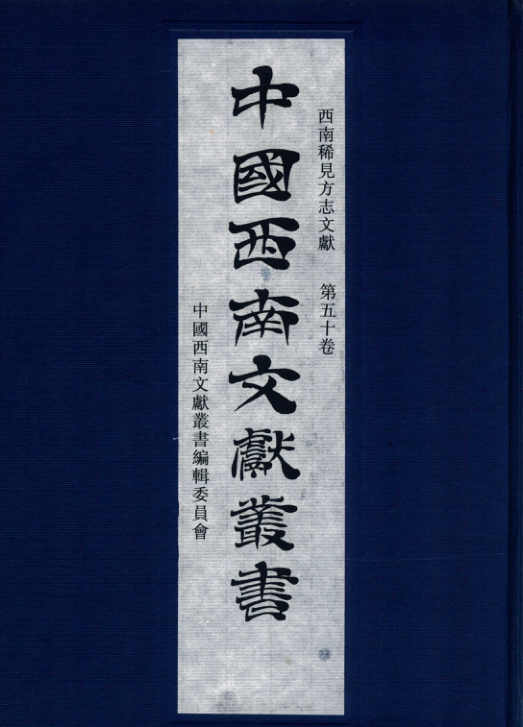 西南稀見方志文獻 第五十卷
中國西南文獻叢書
中國西南文獻叢書編輯委員會